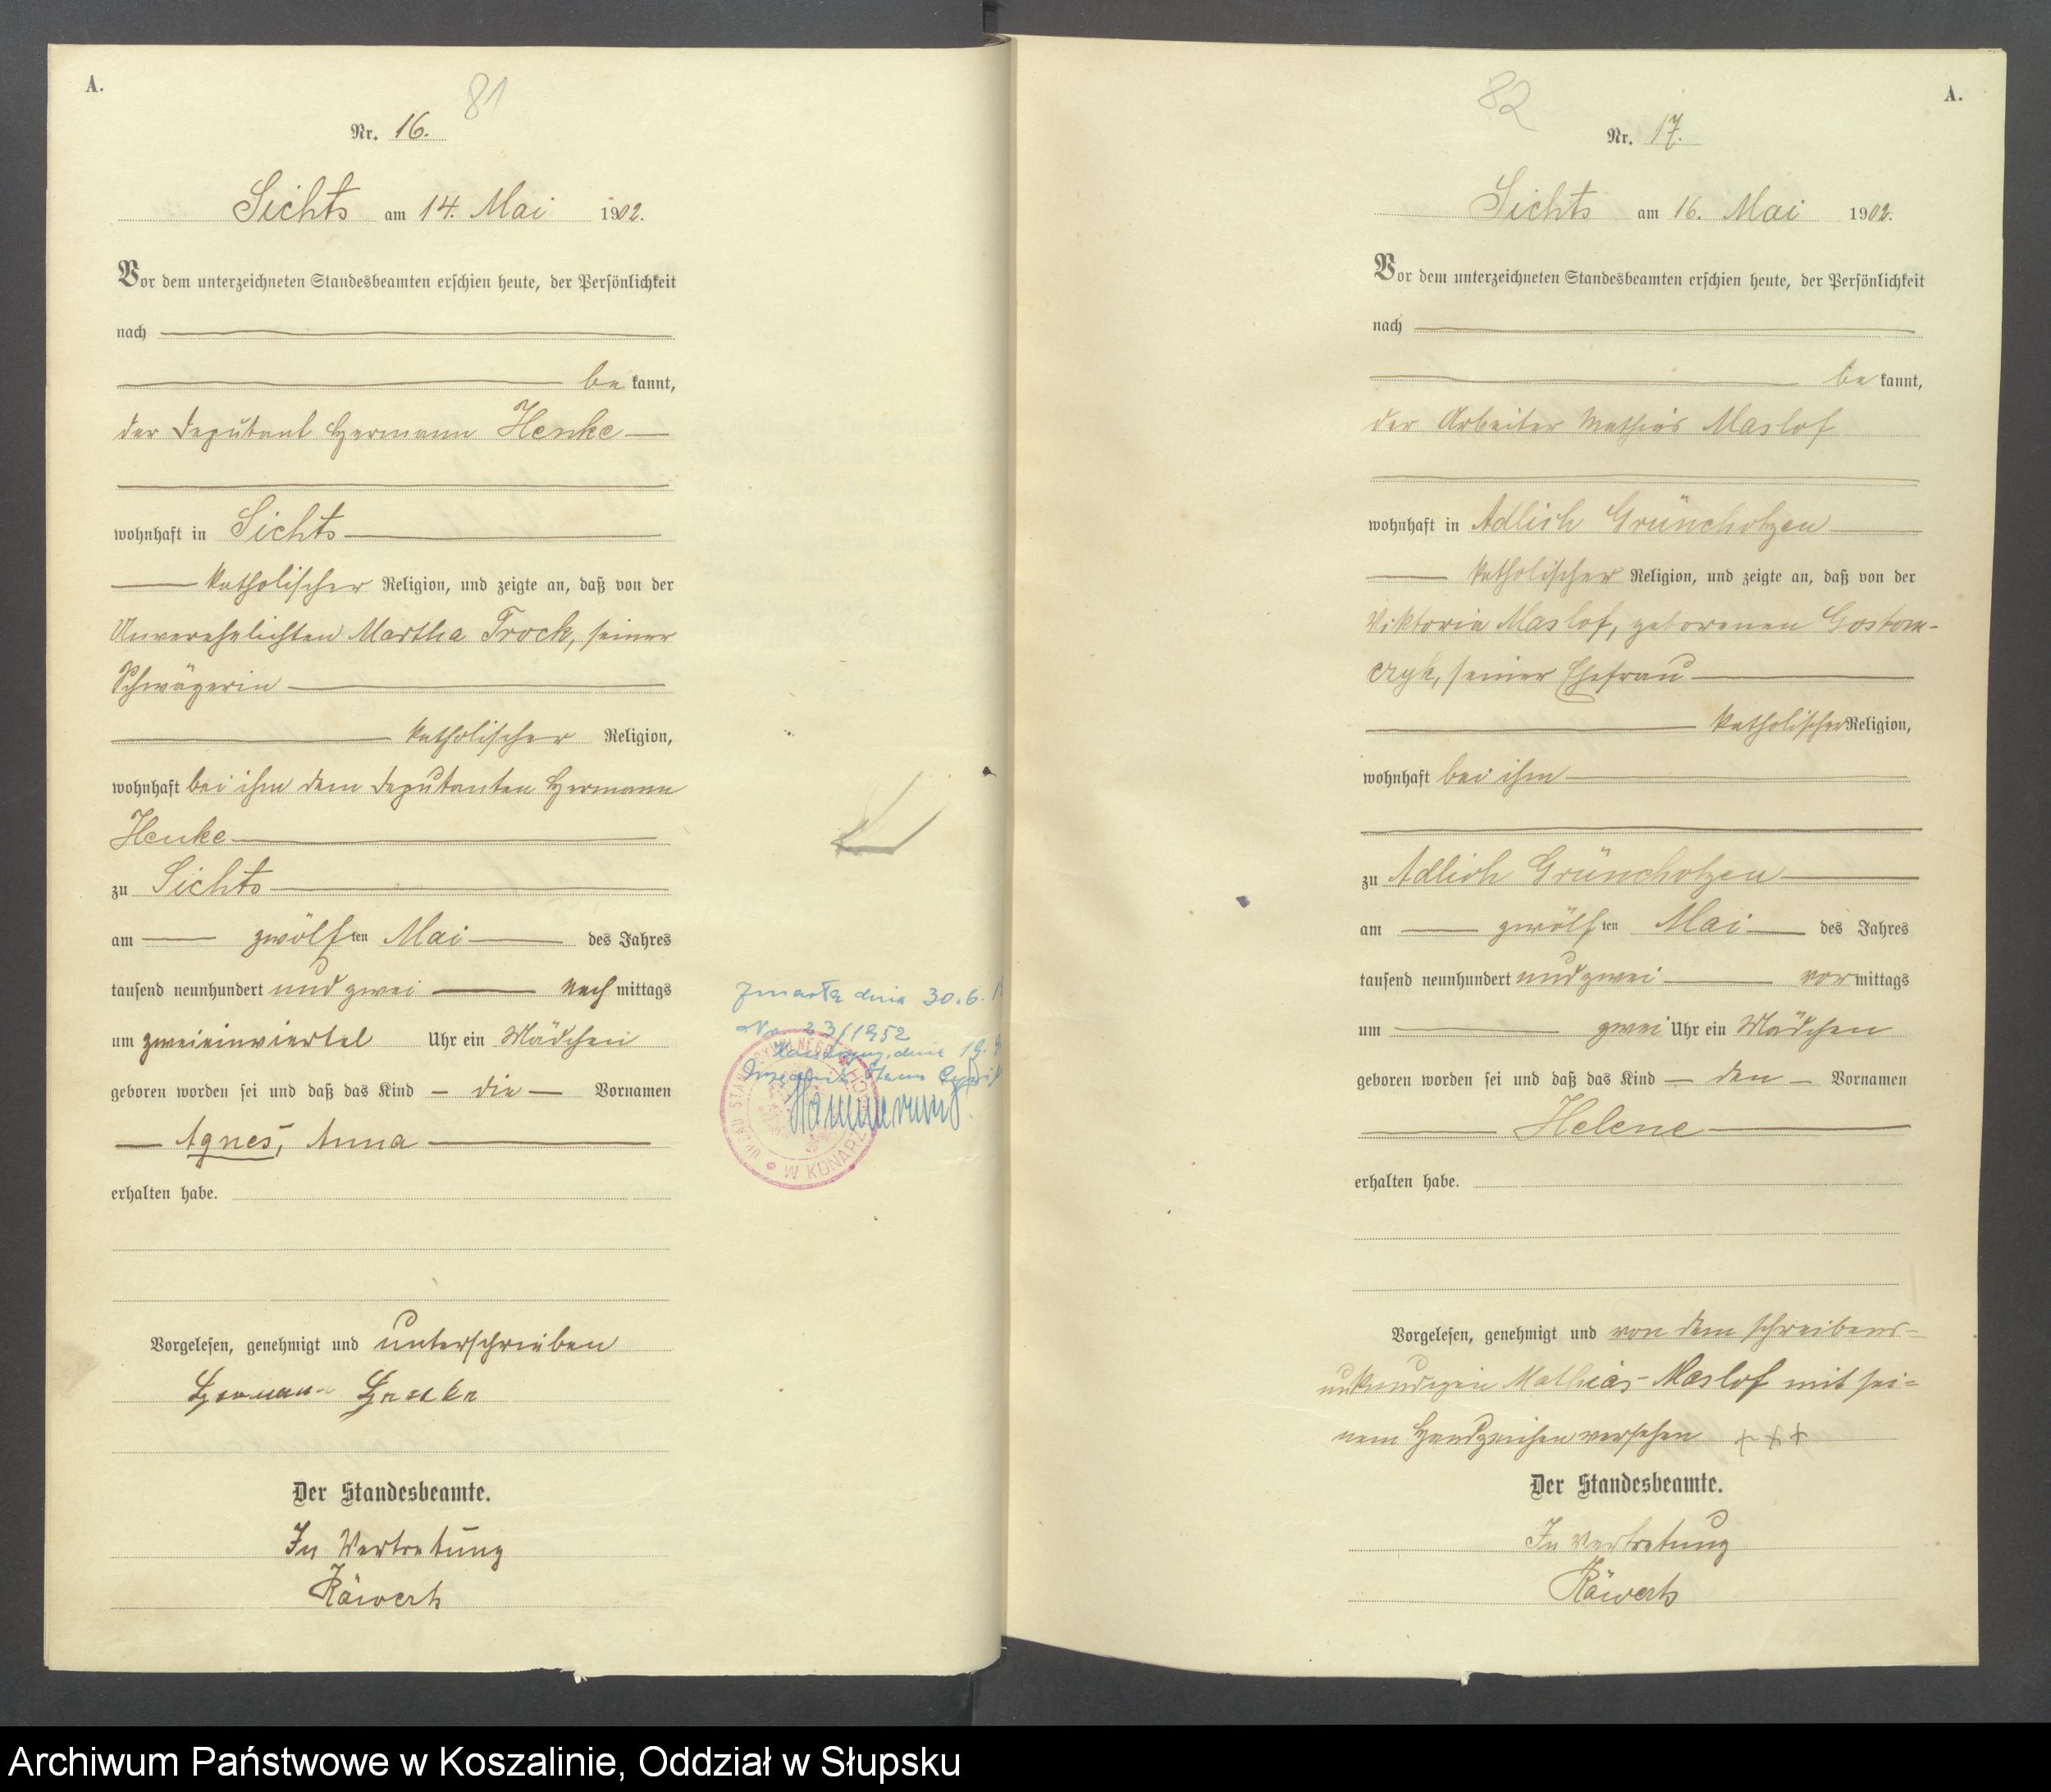 A.
81
Nr. 16.
Sichts am 14. Mai 1902.
Vor dem unterzeichneten Standesbeamten erschien heute, der Persönlichkeit
nach
bekannt,
der Deputant Hermann Henke
wohnhaft in Sichts
katholischer Religion, und zeigte an, daß von der
Unverehelichten Martha Trock, seiner
Schwägerin
katholischer Religion,
wohnhaft bei ihm dem Deputanten Hermann
Henke
zu Sichts
am zwölften Mai des Jahres
tausend neunhundert und zwei nachmittags
um zweieinviertel Uhr ein Mädchen
geboren worden sei und daß das Kind – die – Vornamen
Agnes, Anna
erhalten habe.
Vorgelesen, genehmigt und unterschrieben
Hermann Henke
Der Standesbeamte.
In Vertretung
Räwerts
Zmarła dnia 30.6.
No 23/1952
dnia 19.
W KONARZ
82
A.
Nr. 17.
Sichts am 16. Mai 1902.
Vor dem unterzeichneten Standesbeamten erschien heute, der Persönlichkeit
nach
bekannt,
der Arbeiter Mathias Maslof
wohnhaft in Adlich Grünchotzen
katholischer Religion, und zeigte an, daß von der
Viktoria Maslof, geborenen Gostom-
czyk, seiner Ehefrau
katholischer Religion,
wohnhaft bei ihm
zu Adlich Grünchotzen
am zwölften Mai des Jahres
tausend neunhundert und zwei vormittags
um zwei Uhr ein Mädchen
geboren worden sei und daß das Kind – den – Vornamen
Helene
erhalten habe.
Vorgelesen, genehmigt und von dem schreibens-
unkundigen Mathias Maslof mit sei-
nem Handzeichen versehen + + +
Der Standesbeamte.
In Vertretung
Räwerts
Archiwum Państwowe w Koszalinie, Oddział w Słupsku